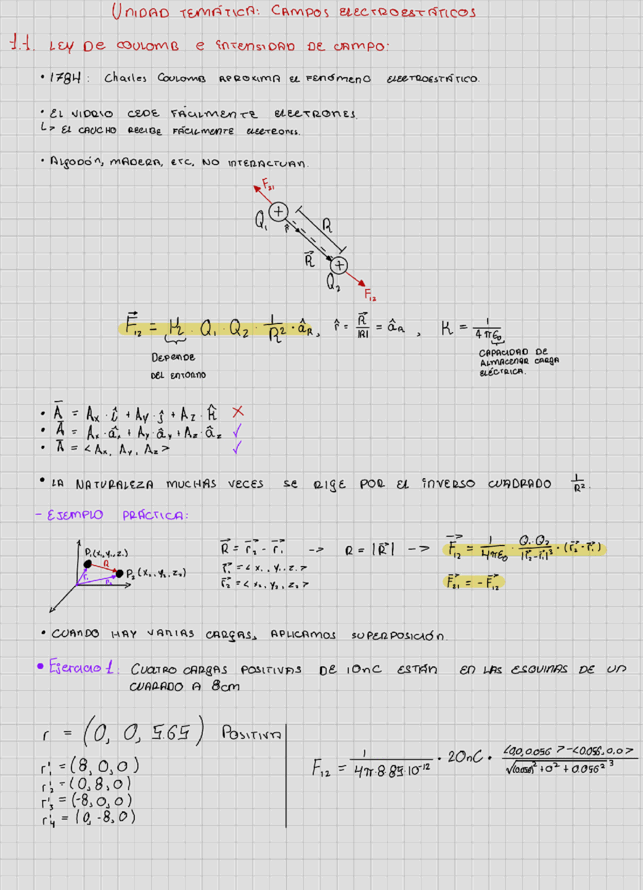 UNIDAD TEMÁTICA: CAMPOS ELECTROESTÁTICOS
1.1. LEY DE COULOMB e INTENSIDAD DE CAMPO:
• 1784: CHARLES COULOMB APROXIMA EL FENÓMENO ELECTROESTÁTICO.
• EL VIDRIO CEDE FÁCILMENTE ELECTRONES.
↳ EL CAUCHO RECIBE FÁCILMENTE ELECTRONES.
• ALGODÓN, MADERA, ETC, NO INTERACTUAN.
F₂₁
Q₁ + R
r̂ R⃗ +
Q₂
F₁₂
F⃗₁₂ = K · Q₁ · Q₂ · 1/R² · â_R, r̂ = R⃗/|R| = â_R, K = 1/4πε₀
DEPENDE DEL ENTORNO
CAPACIDAD DE ALMACENAR CARGA ELÉCTRICA.
• A̅ = Ax · î + Ay · ĵ + Az · k̂ ✗
• A̅ = Ax · âx + Ay · ây + Az · âz ✓
• A̅ = <Ax, Ay, Az> ✓
• LA NATURALEZA MUCHAS VECES SE RIGE POR EL INVERSO CUADRADO 1/R².
- EJEMPLO PRÁCTICA:
P₁(x₁, y₁, z₁)
R
P₂(x₂, y₂, z₂)
r₁
r₂
R⃗ = r⃗₂ - r⃗₁ -> R = |R⃗| -> F⃗₁₂ = 1/4πε₀ · Q₁·Q₂/|r⃗₂-r⃗₁|³ · (r⃗₂-r⃗₁)
r⃗₁ = <x₁, y₁, z₁>
r⃗₂ = <x₂, y₂, z₂> F⃗₂₁ = -F⃗₁₂
• CUANDO HAY VARIAS CARGAS, APLICAMOS SUPERPOSICIÓN.
• Ejercicio 1. CUATRO CARGAS POSITIVAS DE 10nC ESTÁN EN LAS ESQUINAS DE UN
CUADRADO A 8cm
r = (0, 0, 5.65) POSITIVA
r'₁ = (8, 0, 0)
r'₂ = (0, 8, 0)
r'₃ = (-8, 0, 0)
r'₄ = (0, -8, 0)
F₁₂ = 1/4π·8.85·10⁻¹² · 20nC · <0,0,0.056>-<0.056,0,0>/√(0.056)²+0²+0.056² ³